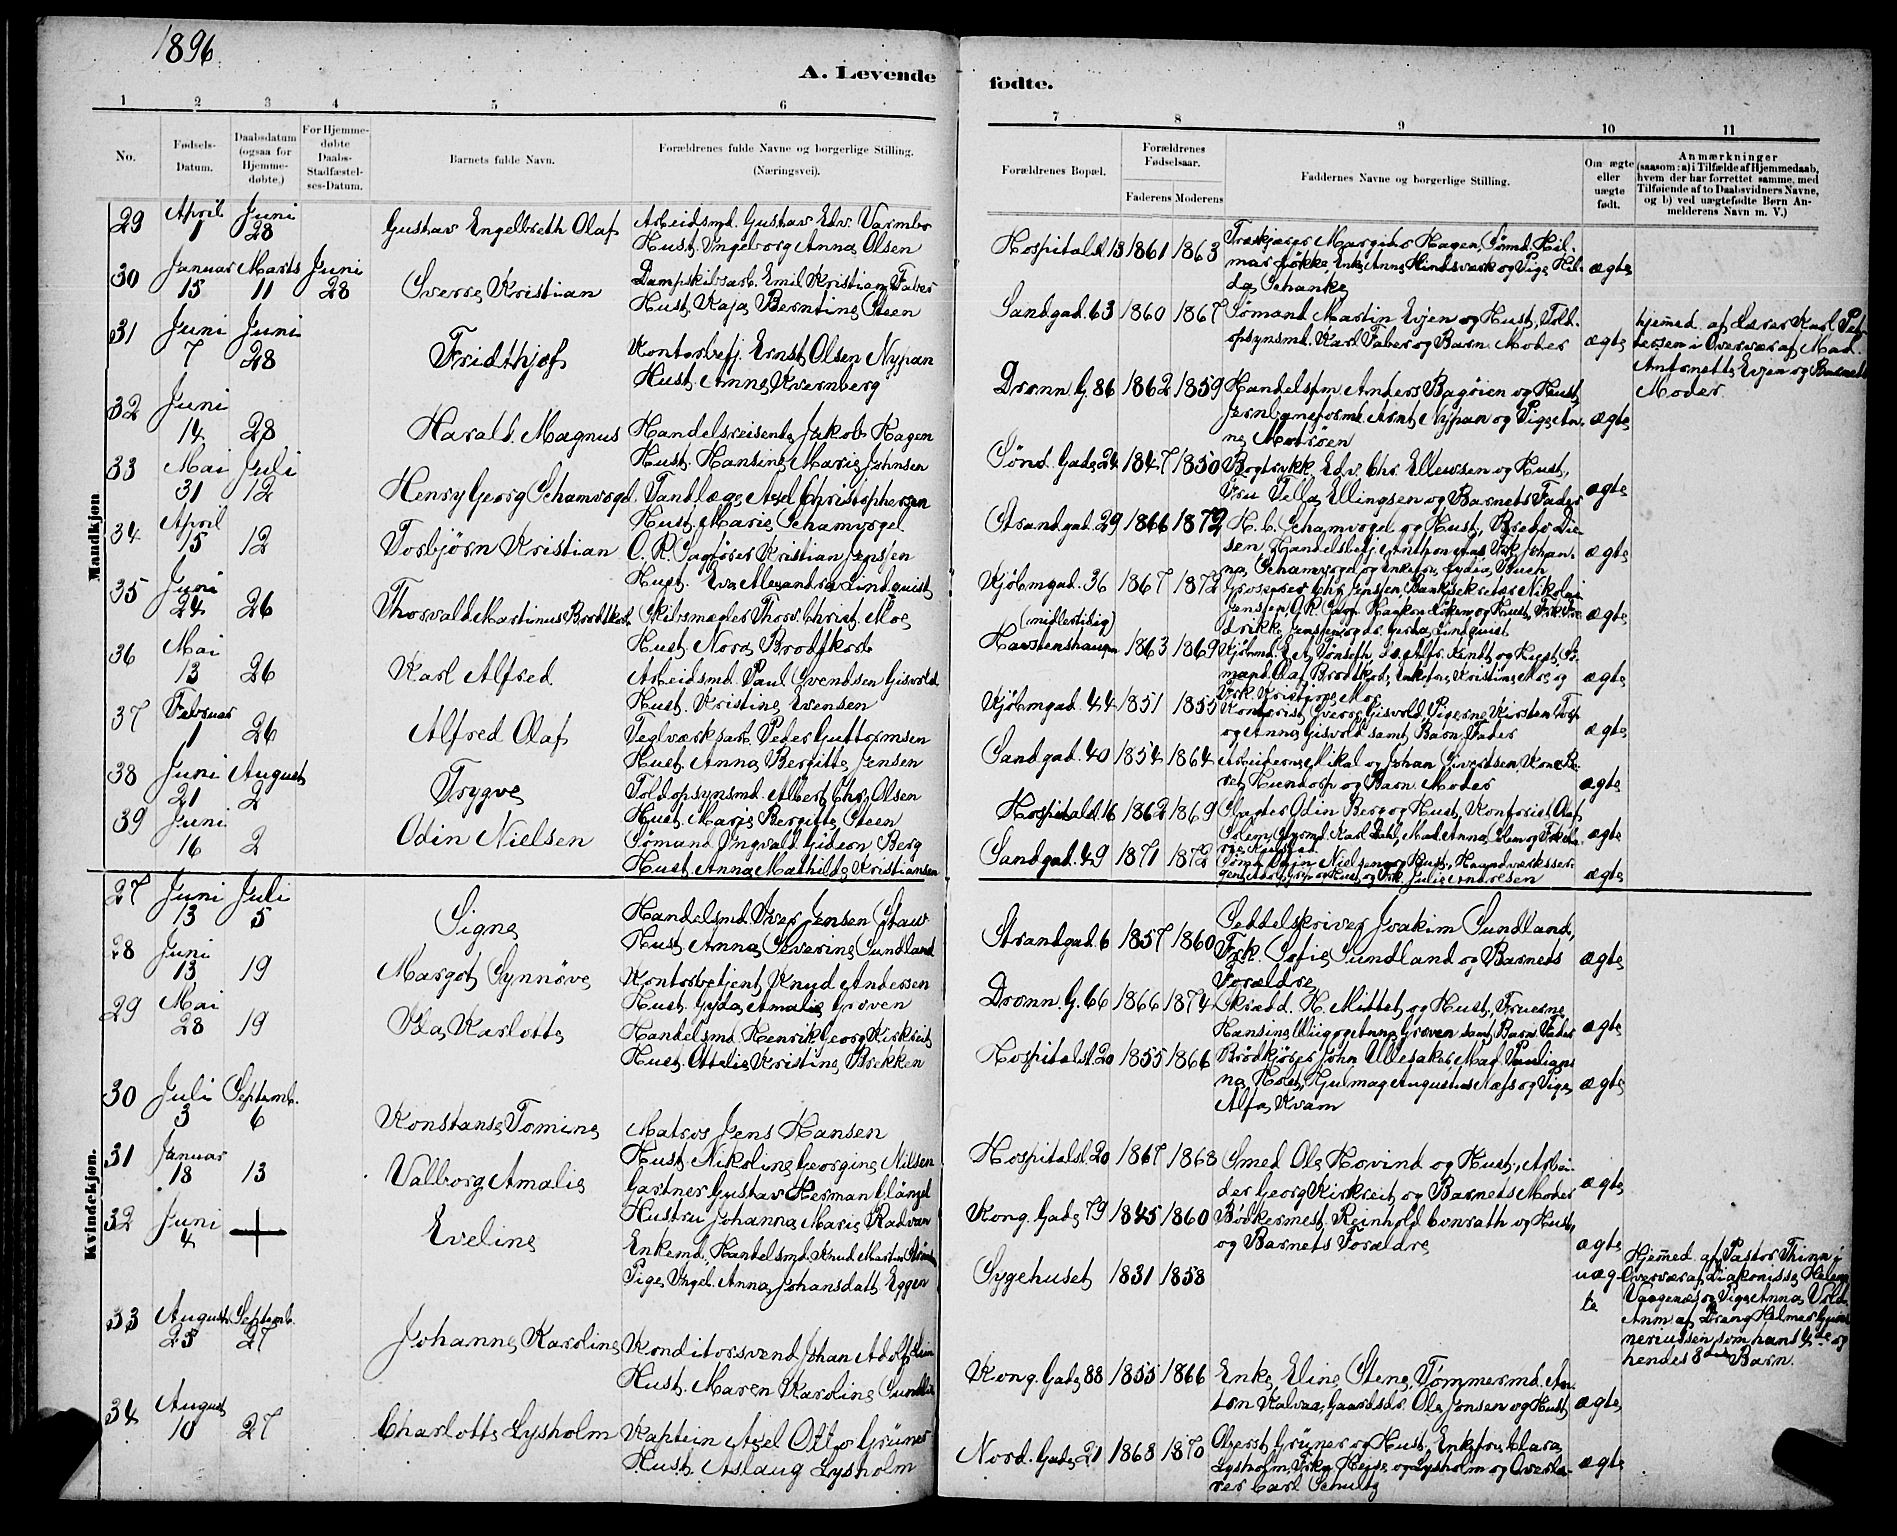 1896
A. Levende fødte.
1 2 3 4 5 6 7 8 9 10 11
No.
Fødsels-Datum.
Daabsdatum (ogsaa for Hjemme-døbte.)
For Hjemme-døbte Daabs-Stadfæstel-ses-Datum.
Barnets fulde Navn.
Forældrenes fulde Navne og borgerlige Stilling.
(Næringsvei).
Forældrenes Bopæl.
Forældrenes Fødselsaar.
Faderens Moderens
Faddernes Navne og borgerlige Stilling.
Om ægte eller uægte født.
Anmærkninger
(saasom: a) i Tilfælde af Hjemmedaab,
hvem der har forrettet samme, med
Tilføiende af to Daabsvidners Navne,
og b) ved uægtefødte Børn An-
melderens Navn m. V.)
Mandkjøn
29 April 1 Juni 28 Gustav Engelbreth Olaf
Arbeidsmd. Gustav Edv. Varmbo
Hust. Ingeborg Anna Olsen
Hospitalsl. 13 1861 1863
Hagen, Sømd. Hil-
mar Løkke, Enke Anne Hindsværk og Pige Hil-
da Schanke
ægte
30 Januar 15 Marts 11 Juni 28 Sverre Kristian
Dampskibsarb. Emil Kristian Faber
Hust. Kaja Berntine Steen
Sandgad. 63 1860 1867
Sømand Martin Evjen og Hust., Told-
opsynsmd. Karl Faber og Barn. Moder
ægte
Hjemmed. af Lærer Karl Pet-
tersen i Overvær af Mad.
Antonette Evjen og Barnets
Moder.
31 Juni 7 Juni 28 Fridthjof
Kontorbetj. Ernst Olsen Nypan
Hust. Anna Kvernberg
Dronn. G. 86 1862 1859
Handelsfm. Anders Bagøien og Hust.,
Jernbaneform. Arnt Nypan og Pige An-
na Moxrøen
ægte
32 Juni 14 28 Harald Magnus
Handelsreisende Jakob Hagen
Hust. Hansine Marie Johnsen
Sønd. Gade 24 1847 1850
Bogtrykk. Edv. Chr. Ellewsen og Hust.,
Fru Tella Ellingsen og Barnets Fader
ægte
33 Mai 31 Juli 12 Henry Georg Schamvogel
Tandlæge Axel Christophersen
Hust. Marie Schamvogel
Strandgad. 29 1866 1872
H. C. Schamvogel og Hust.,
Johan-
na Schamvogel og Enkefru Lydia Buch
ægte
34 April 15 12 Torbjørn Kristian
O. R. Sagfører Kristian Jenssen
Hust. Eva Alexandra Lindquist
Kjøbmgad. 36 1867 1872
Grosserer Chr. Jenssen, Banksekretær Nikolai
Jenssen, O. R. Sagf. Haakon Løken og Hust., Frk. Fre-
drikke Jenssen og do. Gerda Lindquist
ægte
35 Juni 24 26 Thorvald Martinus Brodtkorb
Skibsmægler Thorv. Christ. Moe
Hust. Nora Brodtkorb
(midlertidig)
1863 1869
Brodtkorb, Enkefru Kristine Moe og
Frk. Kristine Moe
ægte
36 Mai 13 26 Karl Alfred
Arbeidsmd. Paul Svendsen Gisvold
Hust. Kristine Evensen
Kjøbmgad. 44 1851 1855
Kontorist Sverre Gisvold, Pigerne Kirsten
og Anna Gisvold samt Barn. Fader
ægte
37 Februar 1 26 Alfred Olaf
Teglværksarb. Peder Guttormsen
Hust. Anna Bergitte Jensen
Sandgad. 40 1854 1864
Arbeiderne Mikal og Johan Sivertsen, Kone Be-
ret Hundorp og Barn. Moder
ægte
38 Juni 21 August 2 Trygve
Toldopsynsmd. Albert Chr. Olsen
Hust. Marie Bergitte Steen
Hospitalsl. 16 1862 1869
Slagter Odin Berg og Hust., Kontorist Olaf
Solem, Styrmd. Karl Dahl, Mad. Anna
ægte
39 Juni 16 2 Odin Nielsen
Sømand Ingvald Gideon Berg
Hust. Anna Mathilde Kristiansen
Sandgad. 49 1871 1872
Sømd. Odin Nielsen og Hust., Haandværksser-
og Hust. og Frk. Julie Andresen
ægte
Kvindekjøn.
27 Juni 13 Juli 5 Signe
Handelsmd. Iver Jensen Staw
Hust. Anna Severine Sundland
Strandgad. 6 1857 1860
Seddelskriver Joakim Sundland,
Frk. Sofie Sundland og Barnets
Forældre
ægte
28 Juni 13 19 Margot Synnøve
Kontorbetjent Knud Andersen
Hust. Gyda Amalie Grøven
Dronn. G. 66 1866 1874
Skrædd. H. Mittet og Hust., Fruerne
Hansine Wiig og Anna Grøven samt Barn. Fader
ægte
29 Mai 28 19 Ida Karlotte
Handelsmd. Henrik Georg Kirkreit
Hust. Ottelie Kristine Brekken
Hospitalsl. 20 1855 1866
Brødkjører John Ullesaker, Mad.
Holst, Hjulmag. Augustus Næss og Pige
Alfa Kvam
ægte
30 Juli 3 Septemb. 6 Konstanse Tomine
Matros Jens Hansen
Hust. Nikoline Georgine Nilsen
Hospitalsl. 20 1867 1868
Smed Ole Hovind og Hust., Arbei-
der Georg Kirkreit og Barnets Moder
ægte
31 Januar 18 13 Valborg Amalie
Gartner Gustav Herman Glängel
Hustru Johanna Marie Radvan
Kong. Gade 79 1845 1860
Bødkermest. Reinhold Conrath og Hust.
og Barnets Forældre
ægte
32 Juni 4 + Eveline
Enkemd. Handelsmd. Knud Martin
Pige Ingeb. Anna Johansdatt. Eggen
Sygehuset 1831 1858
uæg-
te
Hjemmed. af Pastor Thinn i
Overvær af Diakonisse Helene
Vaagenæs og Pige Anna Vold
Anm. af Dræng Helmer Gun-
neriussen som hans 4de og
hendes 8de Barn.
33 August 25 Septemb. 27 Johanne Karoline
Konditorsvend Johan Adolf
Hust. Maren Karoline
Kong. Gade 88 1855 1866
Enke Eline Stene, Tømmermd. An-
ton Kalvaa, Gaardbr. Ole Jonsen og Hust.
ægte
34 August 10 27 Charlotte Lysholm
Kaptein Axel Otto Grüner
Hust. Aslaug Lysholm
Nord. Gade 21 1868 1870
Oberst Grüner og Hust., Enkefru Clara
Lysholm, Frkn. Heyse og Lysholm og Overlæ-
rer Carl Schultz
ægte